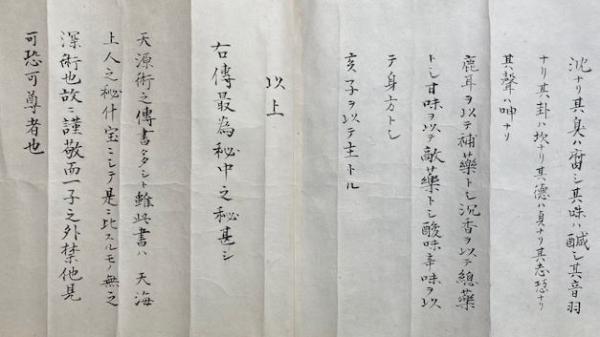 沈ナリ其臭ハ腐シ其味ハ鹹シ其音羽
ナリ其卦ハ坎ナリ其德ハ貞ナリ其志恐ナリ
其聲ハ呻ナリ
鹿耳ヲ以テ補薬トシ沉香ヲ以テ總薬
トシ甘味ヲ以テ敵薬トシ酸味辛味ヲ以
テ身方トシ
亥子ヲ以テ主トル
以上
右傳最為秘中之秘甚シ
天源術之傳書多シト雖此書ハ天海
上人之秘什宝ニシテ是ニ比スルモノ無之
深術也故ニ謹敬而一子之外禁他見
可恐可尊者也